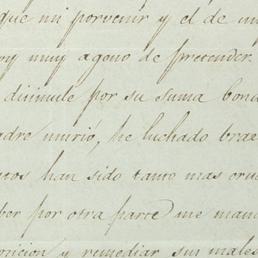 que mi porvenir y el de m
oy muy ageno de pretender.
disimule por su suma bond
adre murió, he luchado braz
tos han sido tanto mas crue
ber por otra parte me man
osicion y remediar sus males